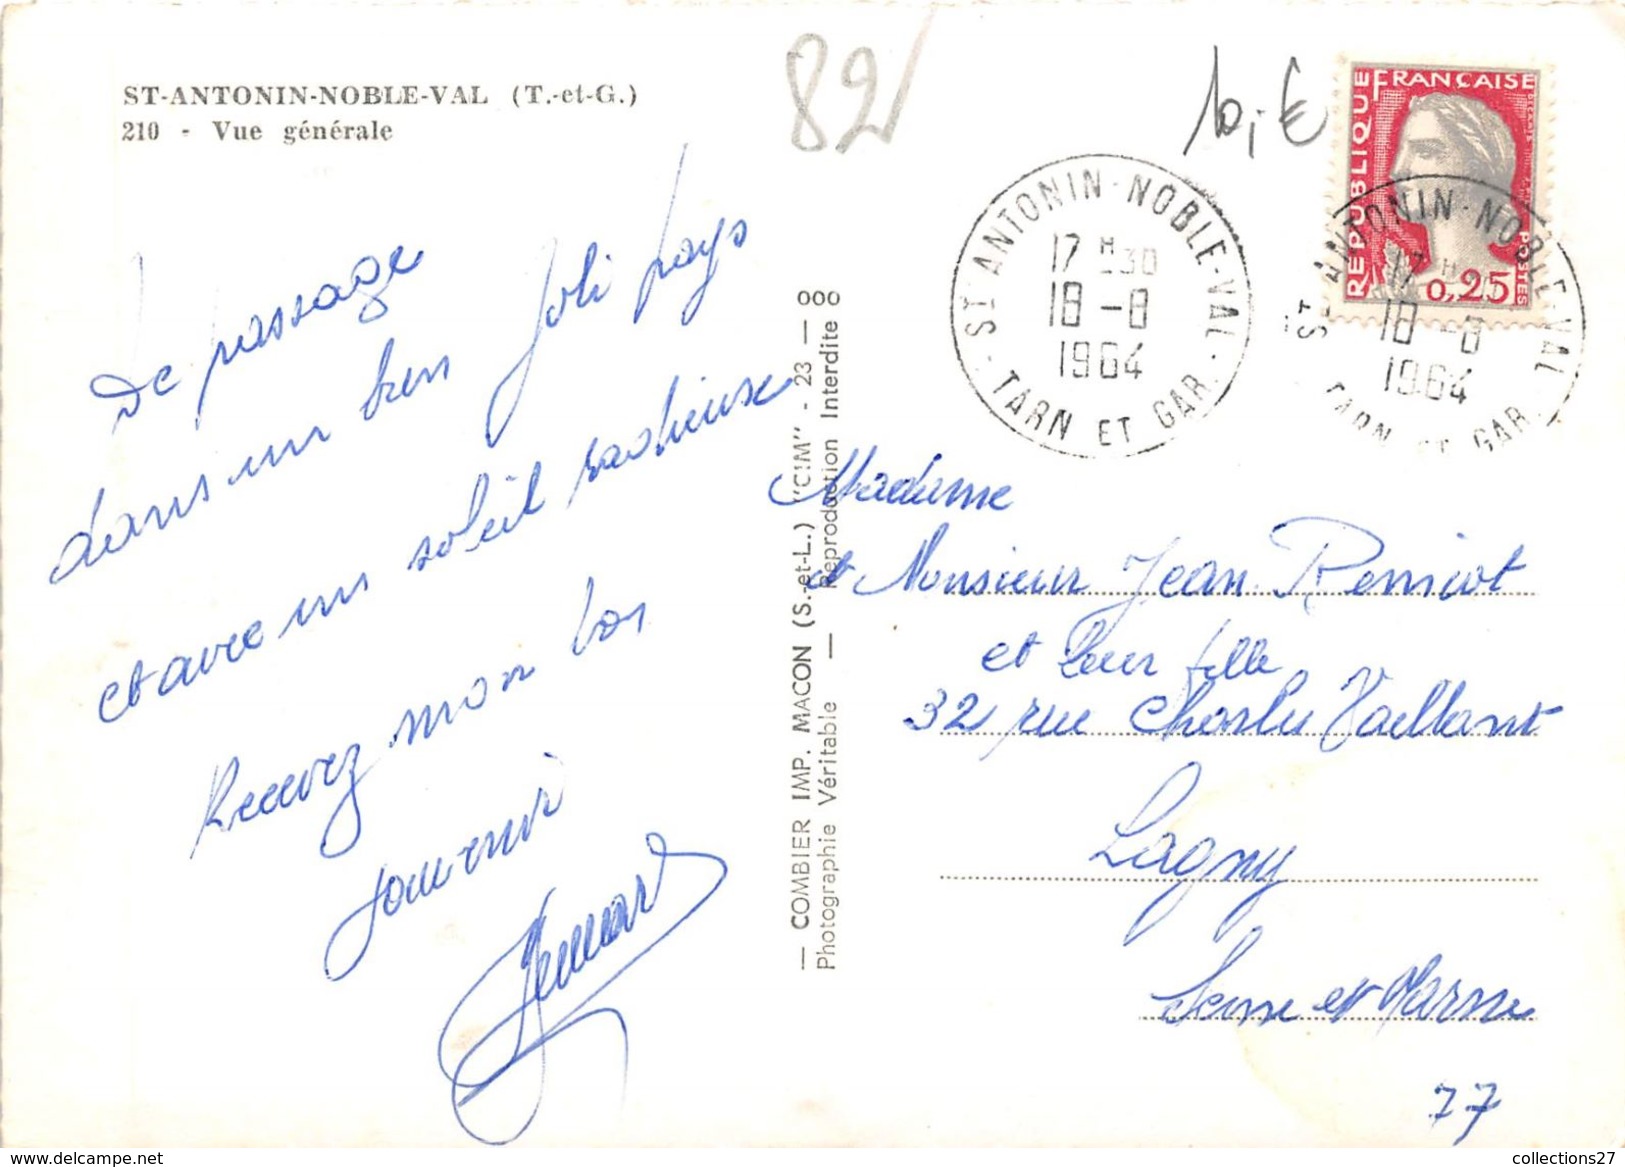 ST-ANTONIN-NOBLE-VAL (T.-et-G.)
210 - Vue générale
82
10,- €
RÉPUBLIQUE FRANÇAISE
POSTES
0,25
ST ANTONIN-NOBLE-VAL
17 H 30
18 -8
1964
TARN ET GAR.
ST ANTONIN-NOBLE-VAL
17 H
18 -8
1964
TARN ET GAR.
De passage
dans un bien joli pays
et avec un soleil radieux
Recevez mon bon
souvenir
— COMBIER IMP. MACON (S.-et-L.) "CIM" - 23 — 000
Photographie Véritable — Reproduction Interdite
Madame
et Monsieur Jean Remiot
et leur fille
32 rue Charles Vaillant
Lagny
Seine et Marne
77
collections27